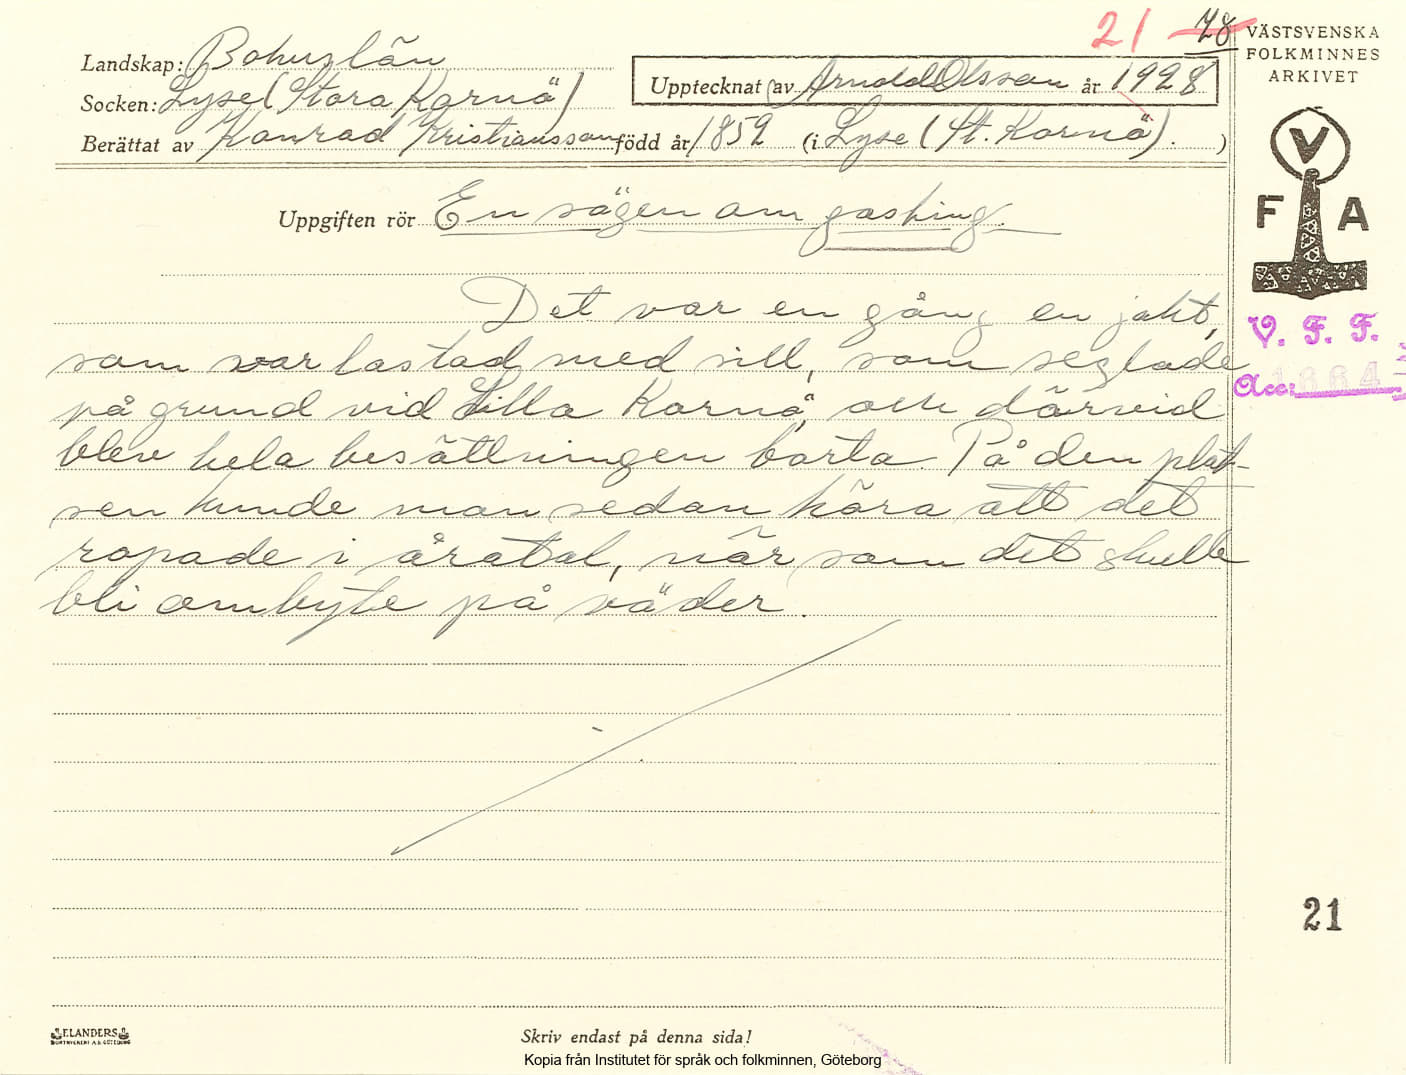 21 28
VÄSTSVENSKA
FOLKMINNES
ARKIVET
Landskap: Bohuslän
Socken: Lyse (Stora Kornö)
Upptecknat av Arnold Olsson år 1928
Berättat av Konrad Kristiansson född år 1859 (i Lyse (St. Kornö).)
V
F A
Uppgiften rör En sägen om gasking
Det var en gång en jakt,
som var lastad med sill, som seglade
på grund vid Lilla Kornö, och därvid
blev hela besättningen borta. På den plat-
sen kunde man sedan höra att det
ropade i åratal, när som det skulle
bli ombyte på väder.
V. F. F.
Acc: 1664
21
ELANDERS
BOKTRYCKERI A.B. GÖTEBORG
Skriv endast på denna sida!
Kopia från Institutet för språk och folkminnen, Göteborg